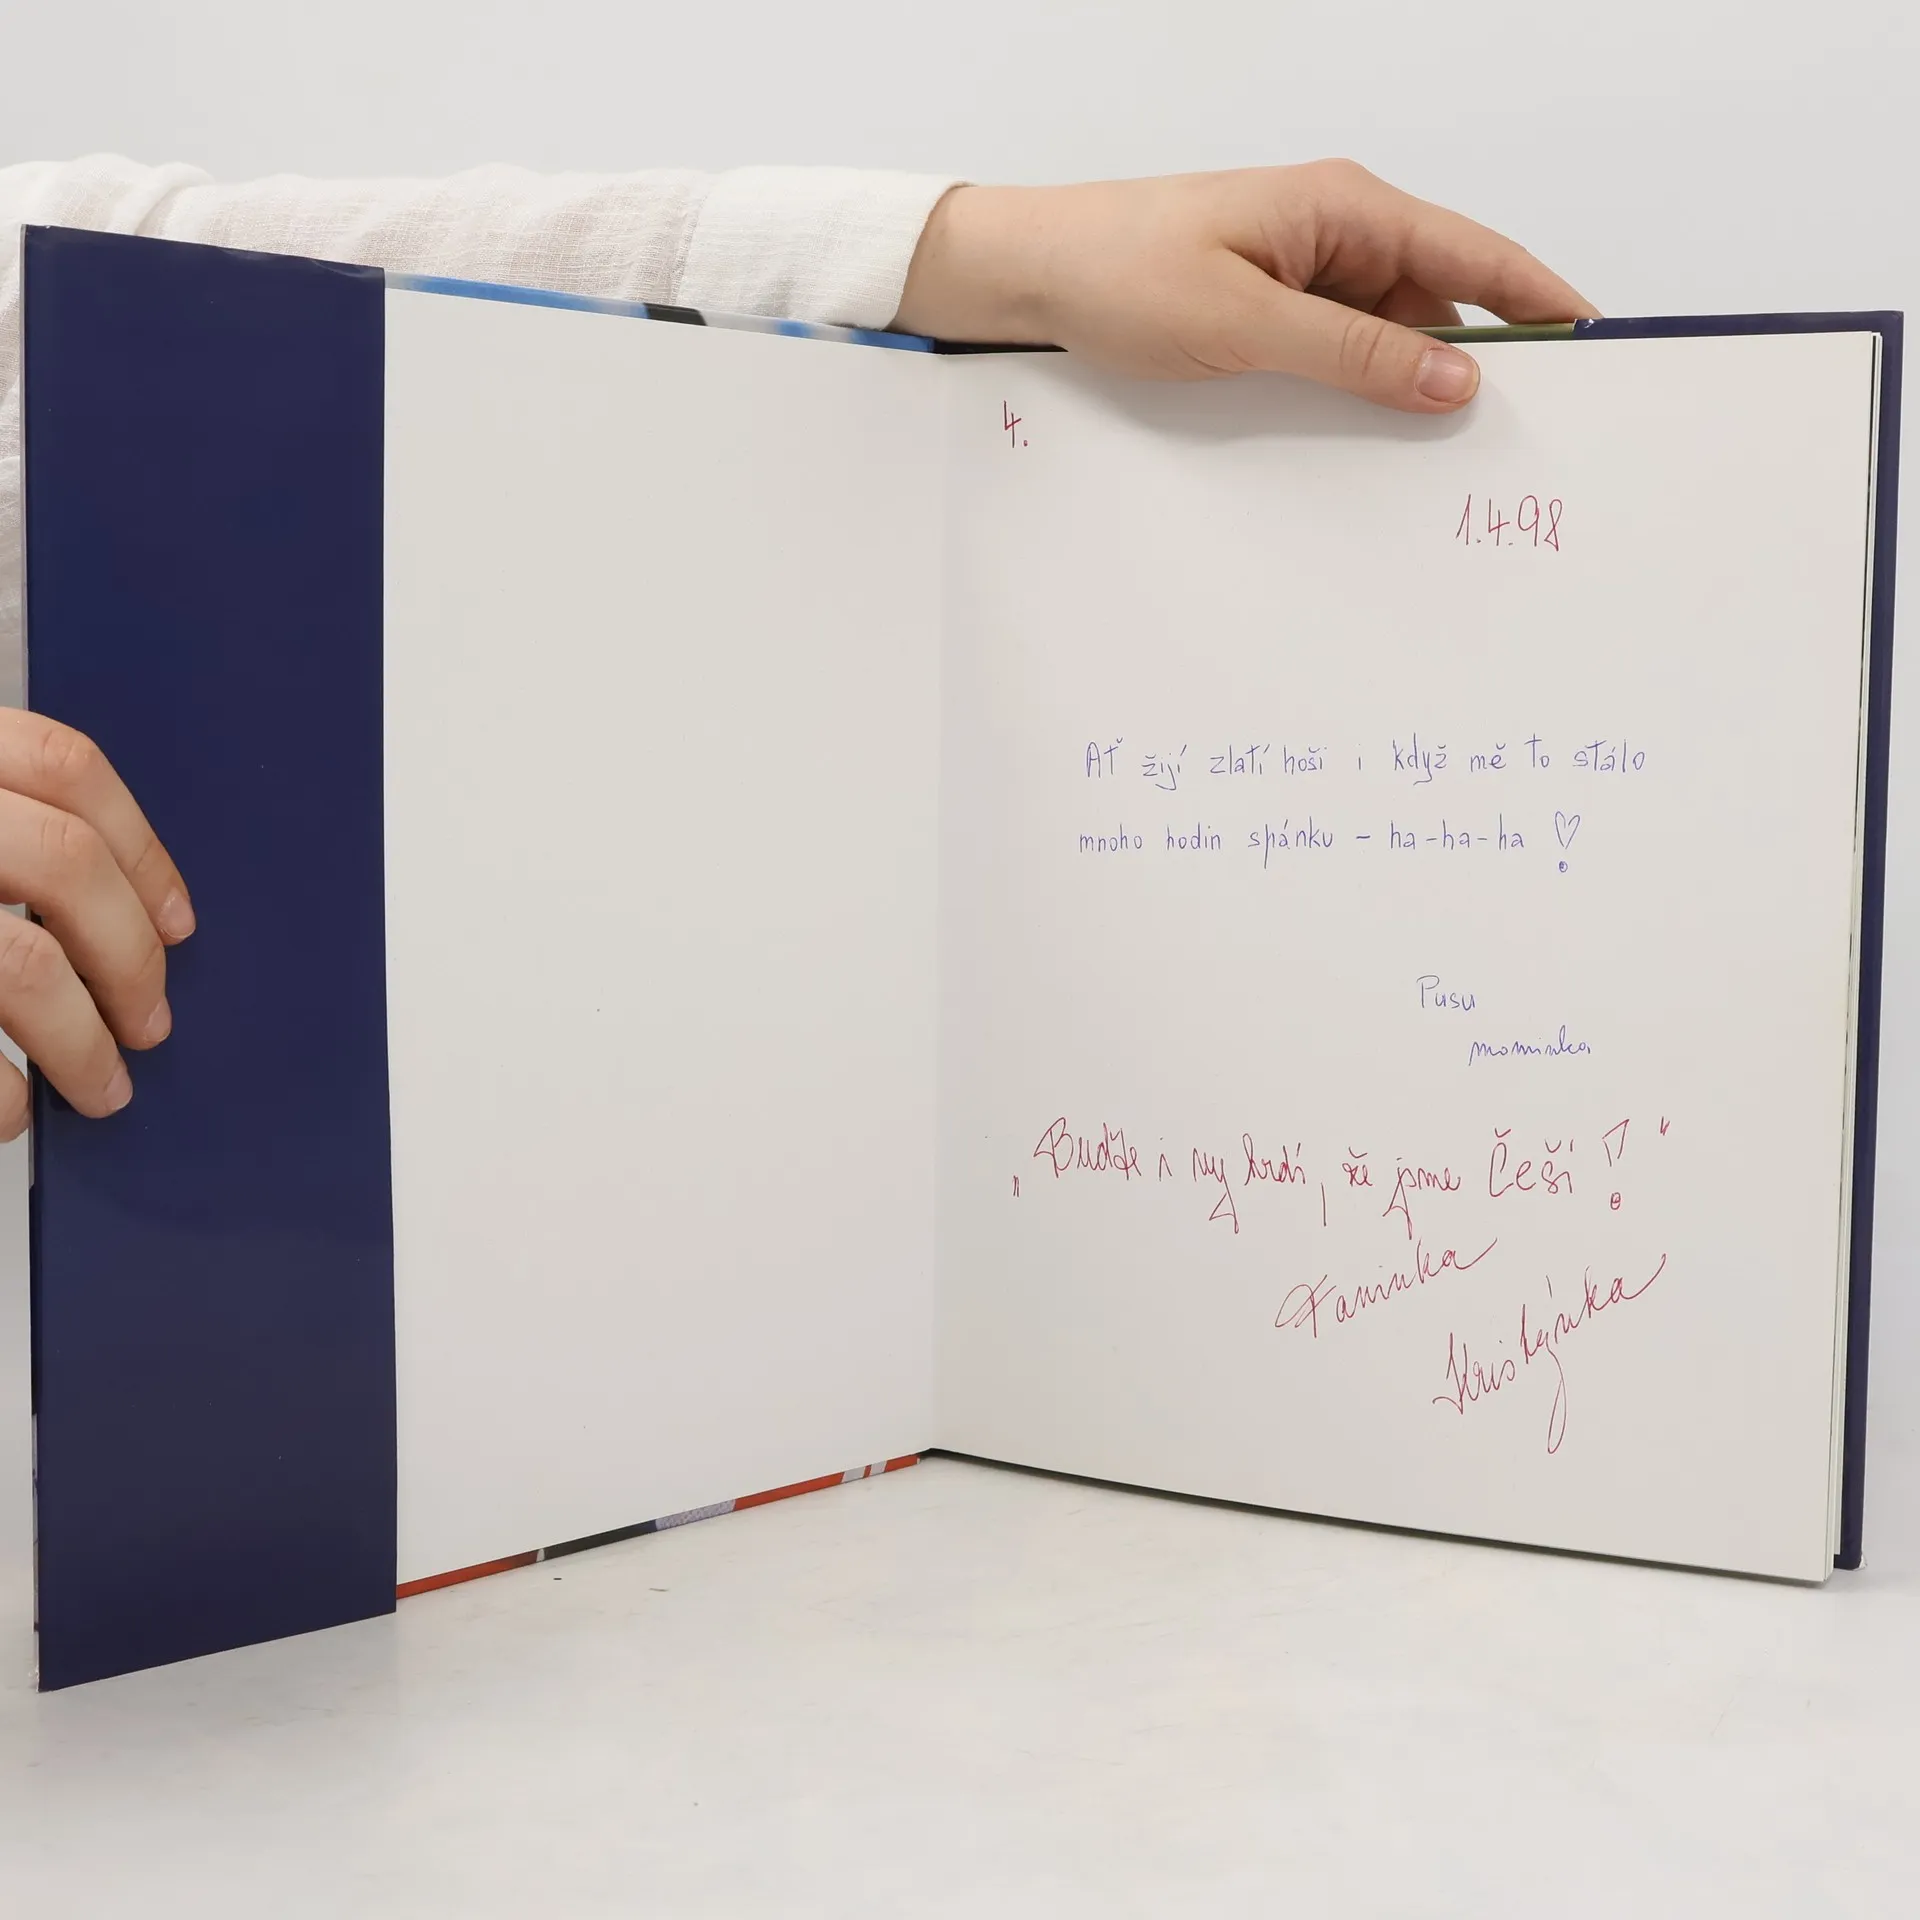 4.
1.4.98
Ať žijí zlatí hoši i když mě to stálo
mnoho hodin spánku - ha-ha-ha !
Pusu
maminka
„Buďte i vy hrdí, že jsme Češi!"
Faninka
Kristýnka